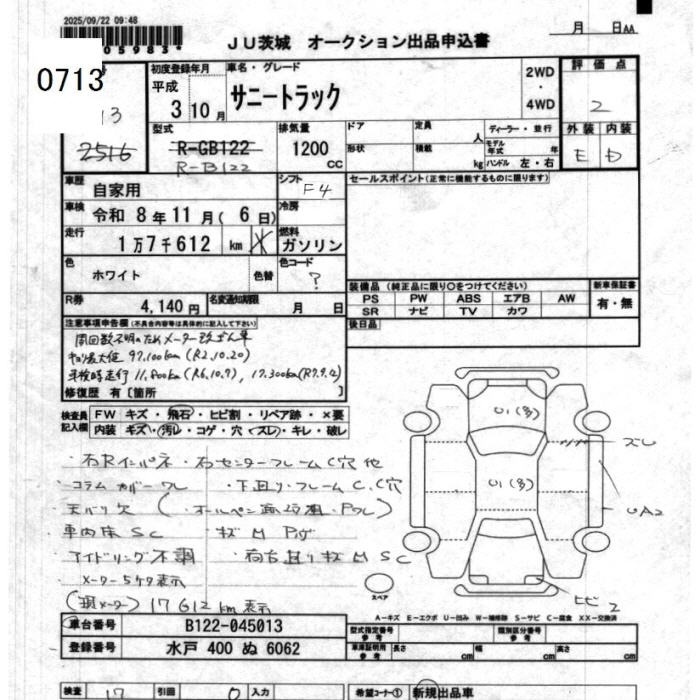 2025/09/22 09:48
05983*
JU茨城 オークション出品申込書
月 日AA
0713
初度登録年月
平成
3 10 月
車名・グレード
サニートラック
2WD
・
4WD
評価点
2
外装 内装
E D
2516
型式
R-GB122
R-B122
排気量
1200
CC
ドア
形状
定員
人
積載
kg
ディーラー・並行
モデル年式 年
ハンドル 左・右
車歴 自家用
シフト F4
車検 令和 8年 11月( 6日)
冷房
走行 1万7千612 km
燃料 ガソリン
色 ホワイト 色替
色コード ?
R券 4,140円
名変通知期限 月 日
セールスポイント(正常に機能するものに限ります)
装備品(純正品に限り○をつけてください)
PS PW ABS エアB AW
SR ナビ TV カワ
新車保証書
有・無
後日品
注意事項申告欄(不具合内容等は具体的に記入して下さい)
周回数不明のためメーター改ざん車
キロ最大値 97,100km (R2.10.20)
車検時走行 11,800km (R6.10.9), 17,300km (R7.9.4)
修復歴 有[箇所 ]
検査員記入欄
FW キズ・飛石・ヒビ割・リペア跡・×要
内装 キズ・汚レ・コゲ・穴・スレ・キレ・破レ
・右Rインパネ・右センターフレームC穴 他
・コラムカバーワレ ・下廻り・フレームC、C穴
・天バリ欠
車内床SC
・アイドリング不調 ・荷台廻りキズMSC
・メーター5ケタ表示
(現メーター) 17612km表示
U1(多)
U1(多)
ズレ
UA2
ヒビ2
スペア
A-キズ E-エクボ U-凹み W-補修跡 S-サビ C-腐食 XX-交換済
車台番号 B122-045013
登録番号 水戸 400 ぬ 6062
型式指定番号 参考
類別区分番号 参考
車庫証明用 参考 長さ cm 幅 cm 高さ cm
検査 17 引回 0 入力
希望コーナー① 新規出品車